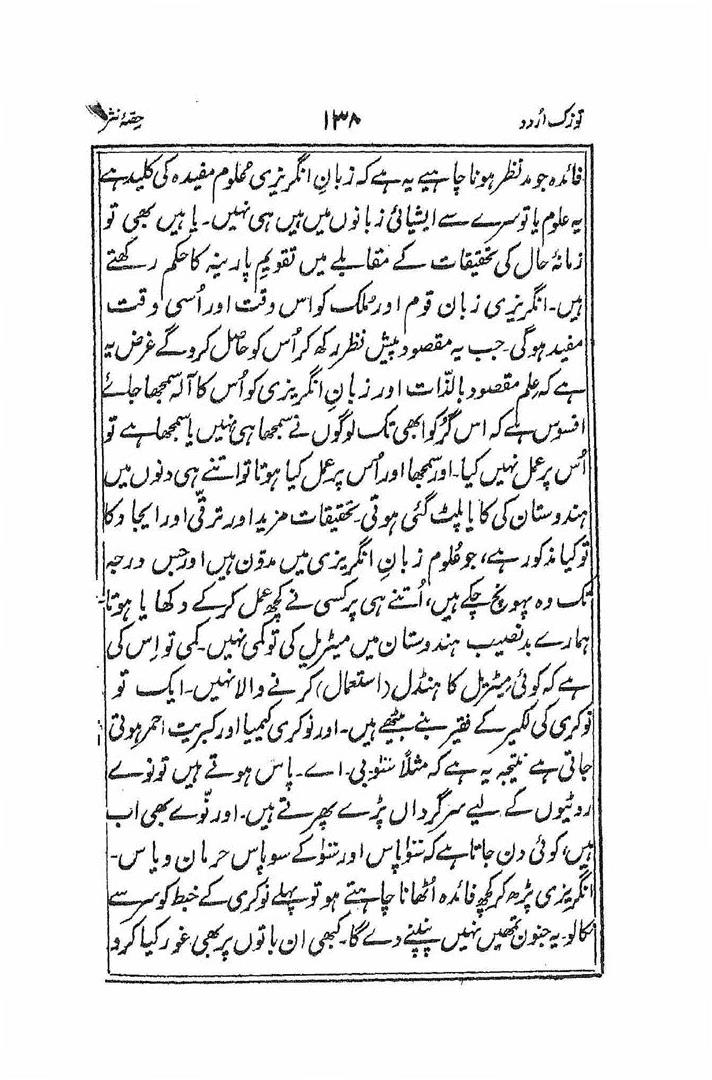 توزک اُردو ۱۳۸ حِصّۂ نثر
فائدہ جو مدِ نظر ہونا چاہیے یہ ہے کہ زبانِ انگریزی عُلومِ مفیدہ کی کلید ہے
یہ علوم یا تو سرے سے ایشیائی زبانوں میں ہیں ہی نہیں۔ یا ہیں بھی تو
زمانۂ حال کی تحقیقات کے مقابلے میں تقویمِ پارینہ کا حکم رکھتے
ہیں۔ انگریزی زبان قوم اور مُلک کو اس وقت اور اُسی وقت
مفید ہوگی۔ جب یہ مقصود پیشِ نظر رکھ کر اُس کو حاصل کروگے غرض یہ
ہے کہ علم مقصود بالذّات اور زبانِ انگریزی کو اُس کا آلہ سمجھا جائے
افسوس ہے کہ اس گُر کو ابھی تک لوگوں نے سمجھا ہی نہیں یا سمجھا ہے تو
اُس پر عمل نہیں کیا۔ اور سمجھا اور اُس پر عمل کیا ہوتا تو اتنے ہی دنوں میں
ہندوستان کی کایا پلٹ گئی ہوتی۔ تحقیقات مزید اور ترقّی اور ایجاد کا
تو کیا مذکور ہے، جو عُلوم زبانِ انگریزی میں مدوّن ہیں اور جس درجہ
تک وہ پہونچ چکے ہیں، اُتنے ہی پر کسی نے کچھ عمل کر کے دکھایا ہوتا۔
ہمارے بدنصیب ہندوستان میں میٹریل کی تو کمی نہیں۔ کمی تو اِس کی
ہے کہ کوئی میٹریل کا ہنڈل (استعمال) کرنے والا نہیں۔ ایک تو
نوکری کی لکیر کے فقیر بنے بیٹھے ہیں۔ اور نوکری کیمیا اور کبریت احمر ہوتی
جاتی ہے نتیجہ یہ ہے کہ مثلاً سَو بی۔ اے۔ پاس ہوتے ہیں تو نوے
روٹیوں کے لیے سرگرداں پڑے پھرتے ہیں۔ اور نّوے بھی اب
ہیں، کوئی دن جاتا ہے کہ سَو پاس اور سَو کے سو پاس حرمان و یاس۔
انگریزی پڑھ کر کچھ فائدہ اُٹھانا چاہتے ہو تو پہلے نوکری کے خبط کو سر سے
نکالو۔ یہ جنون تمھیں نہیں پنپنے دے گا۔ کبھی ان باتوں پر بھی غور کیا کرو